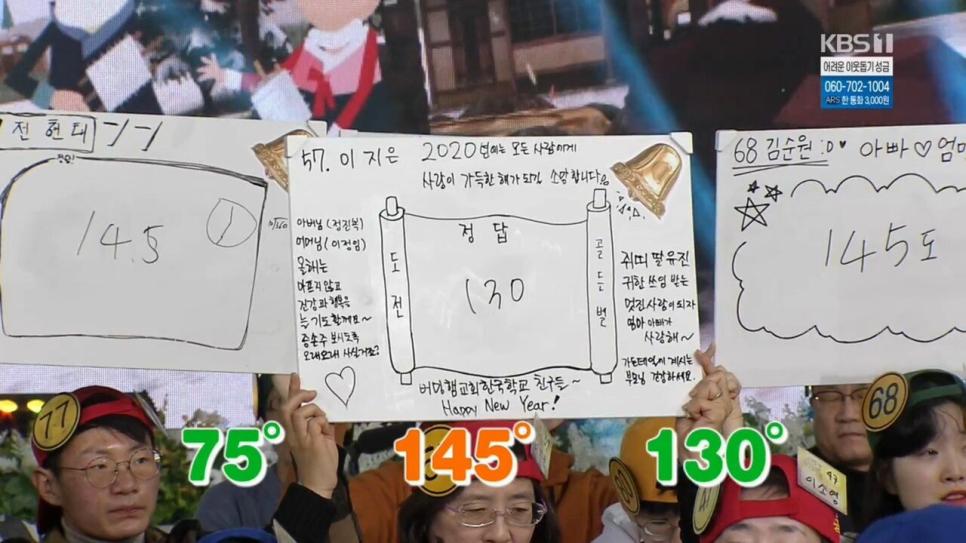 KBS 1
어려운 이웃돕기 성금
060-702-1004
ARS 한 통화 3,000원
145
57. 이 지은
2020년에는 모든 사람에게
사랑이 가득한 해가 되길 소망합니다
아버님 (정진복)
어머님 (이정임)
올해는
아프지 않고
건강과 행복을
늘 기도할게요~
증손주 보시도록
오래오래 사실거죠?
도전
정답
130
골든벨
쥐띠 딸 유진
귀한 쓰임 받는
멋진 사람이 되자
엄마 아빠가
사랑해~
부모님 건강하세요.
버밍햄교회한국학교 친구들~
Happy New Year!
68 김순원 :D ♥ 아빠♡엄마
145도
77
68
이소영
75°
145°
130°